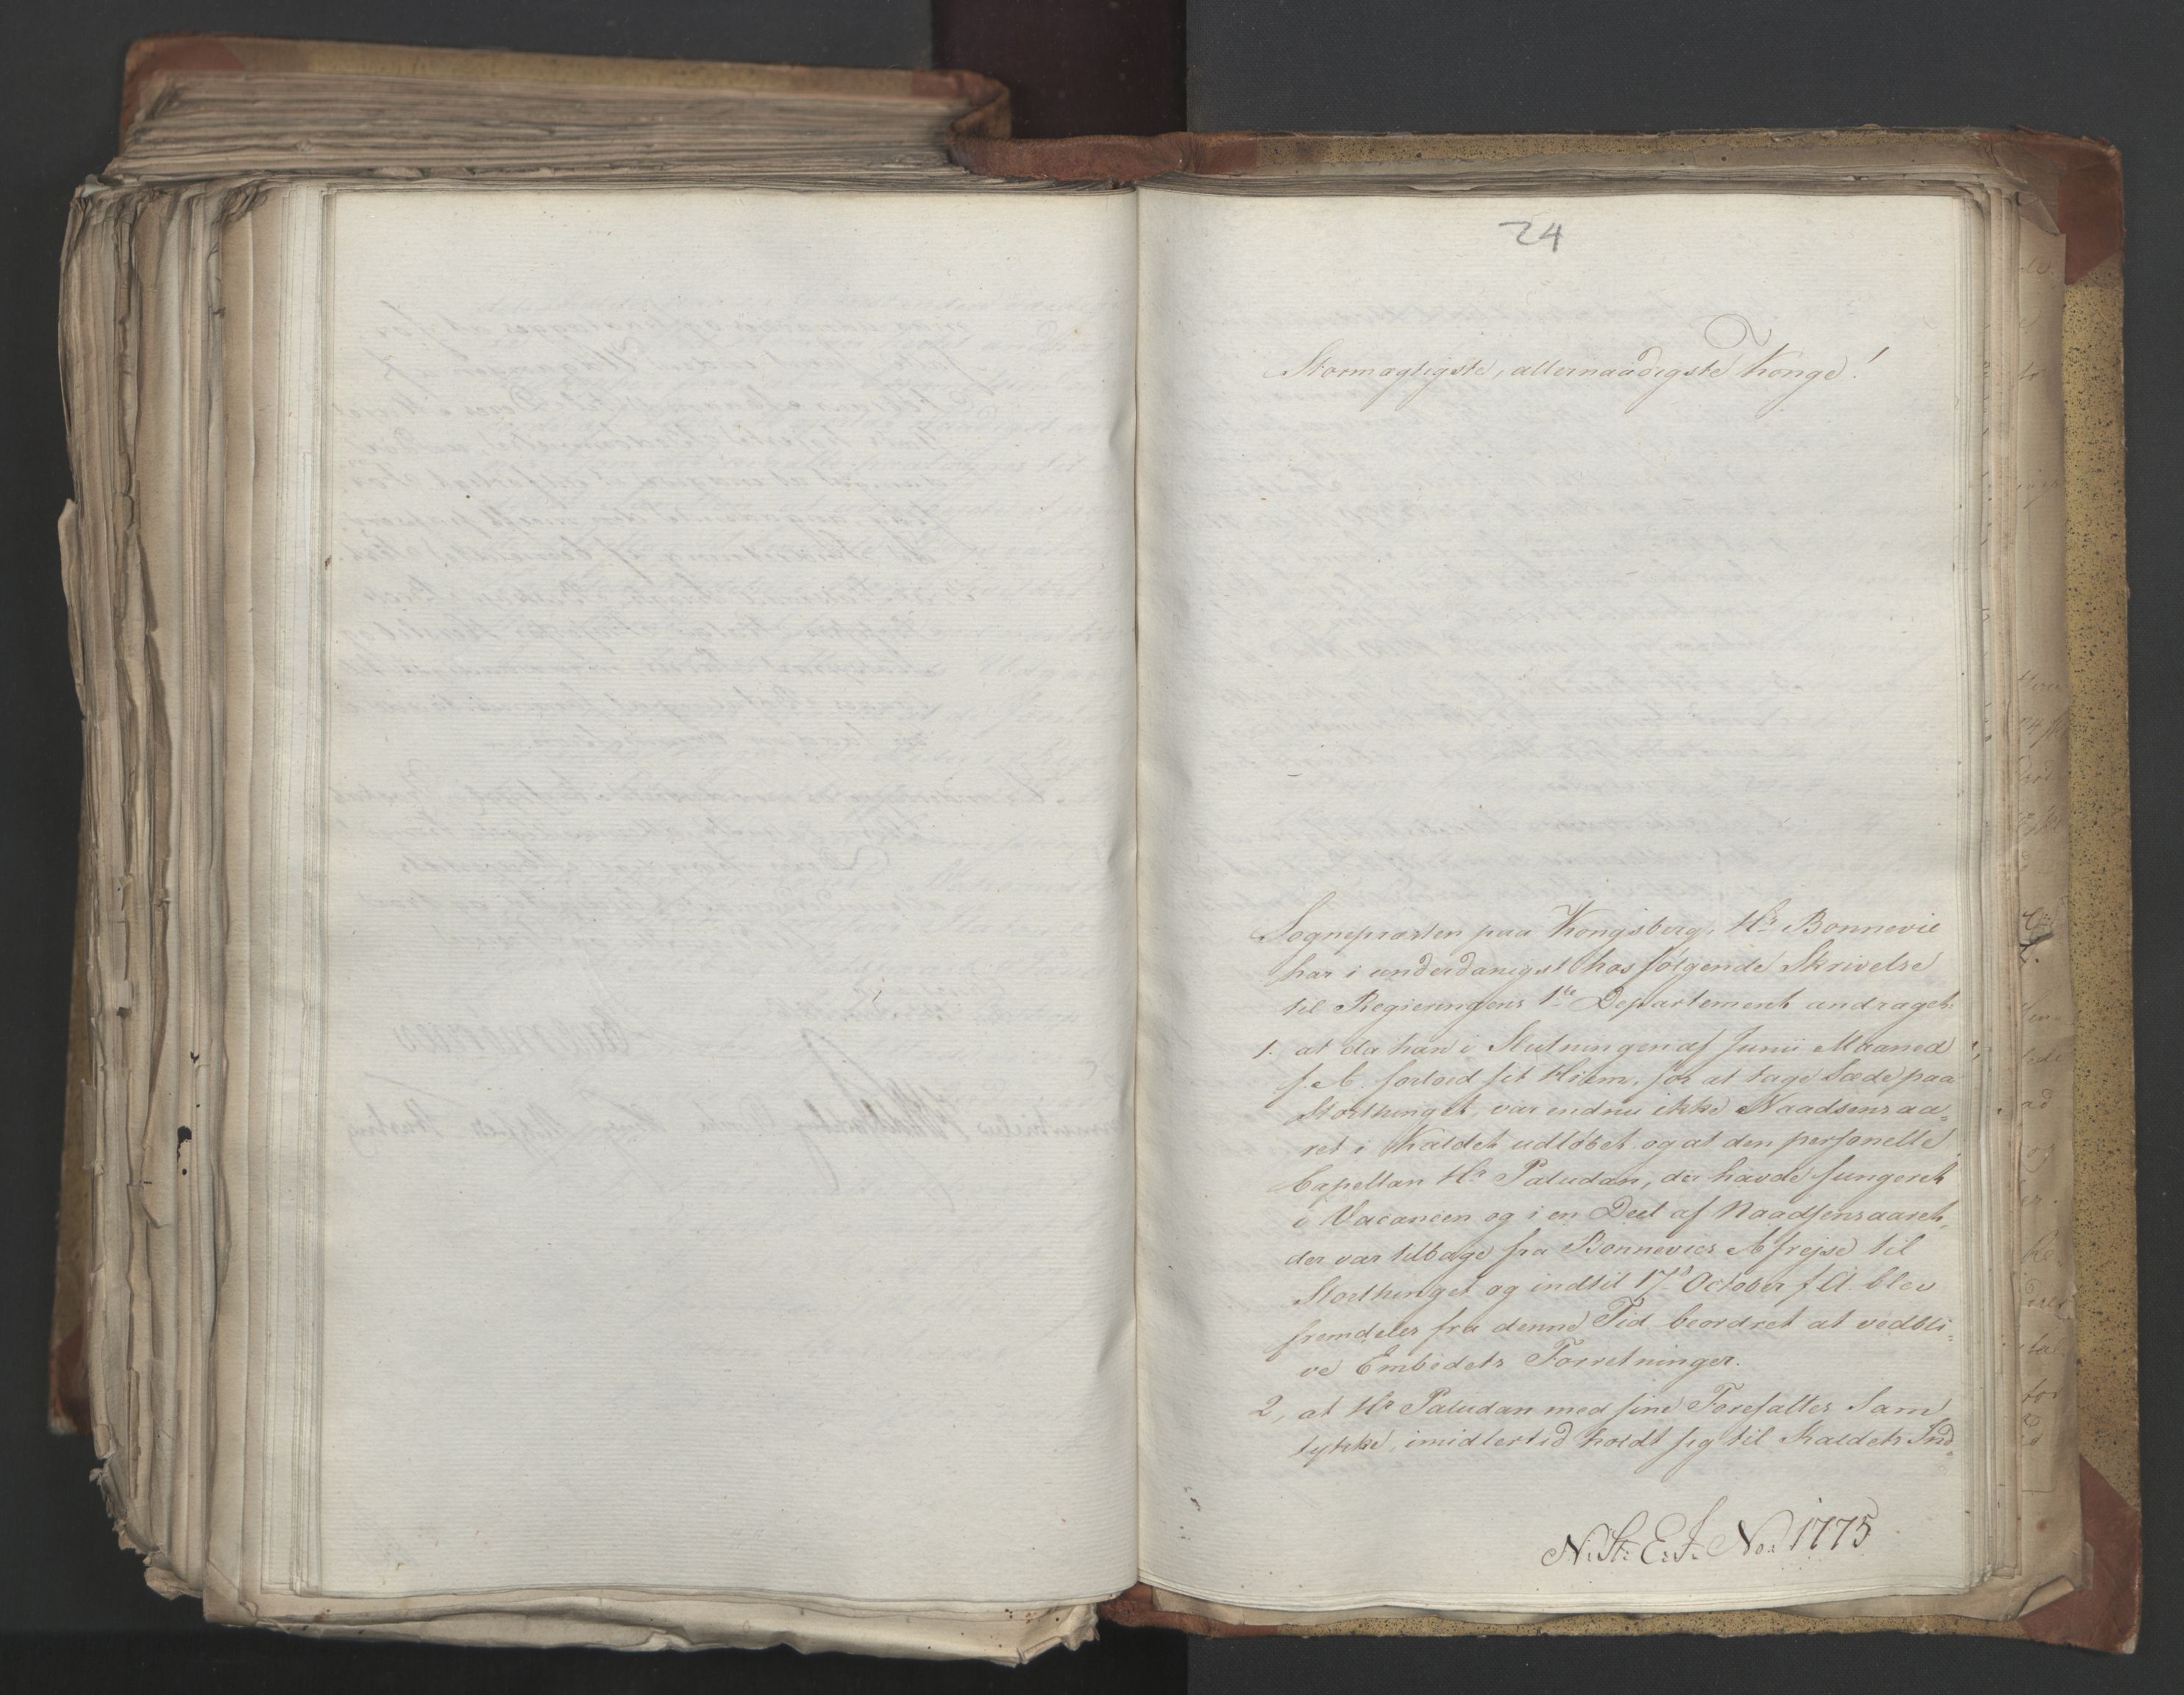 24
Stormægtigste, allernaadigste Konge!
Sognepræsten paa Kongsberg, Hr Bonnevie
har i underdanigst hosfølgende Skrivelse
til Regieringens 1te Departement andraget:
1. at da han i Slutningen af Junii Maaned
f. A. forlod sit Hiem, for at tage Sæde paa
Storthinget, var endnu ikke Naadsensaa-
ret i Kaldet udløbet og at den personelle
Capellan Hr Paludan, der havde fungeret
i Vacancen og i en Deel af Naadsensaaret,
der var tilbage fra Bonnevies Afrejse til
Storthinget og indtil 17d October f. A. blev
fremdeles fra denne Tid beordret at vedbli-
ve Embedets Forretninger.
2, at Hr Paludan med sine Foresattes Sam
tykke, imidlertid holdt sig til Kaldets Ind-
N: St: E: J: No: 1775